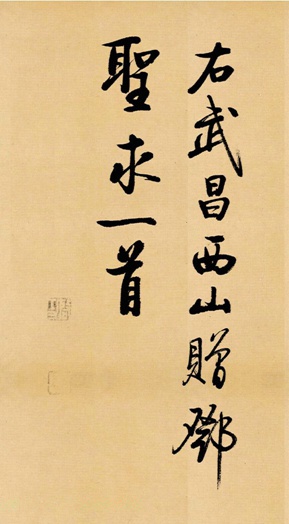 右武昌西山贈鄧
聖求一首